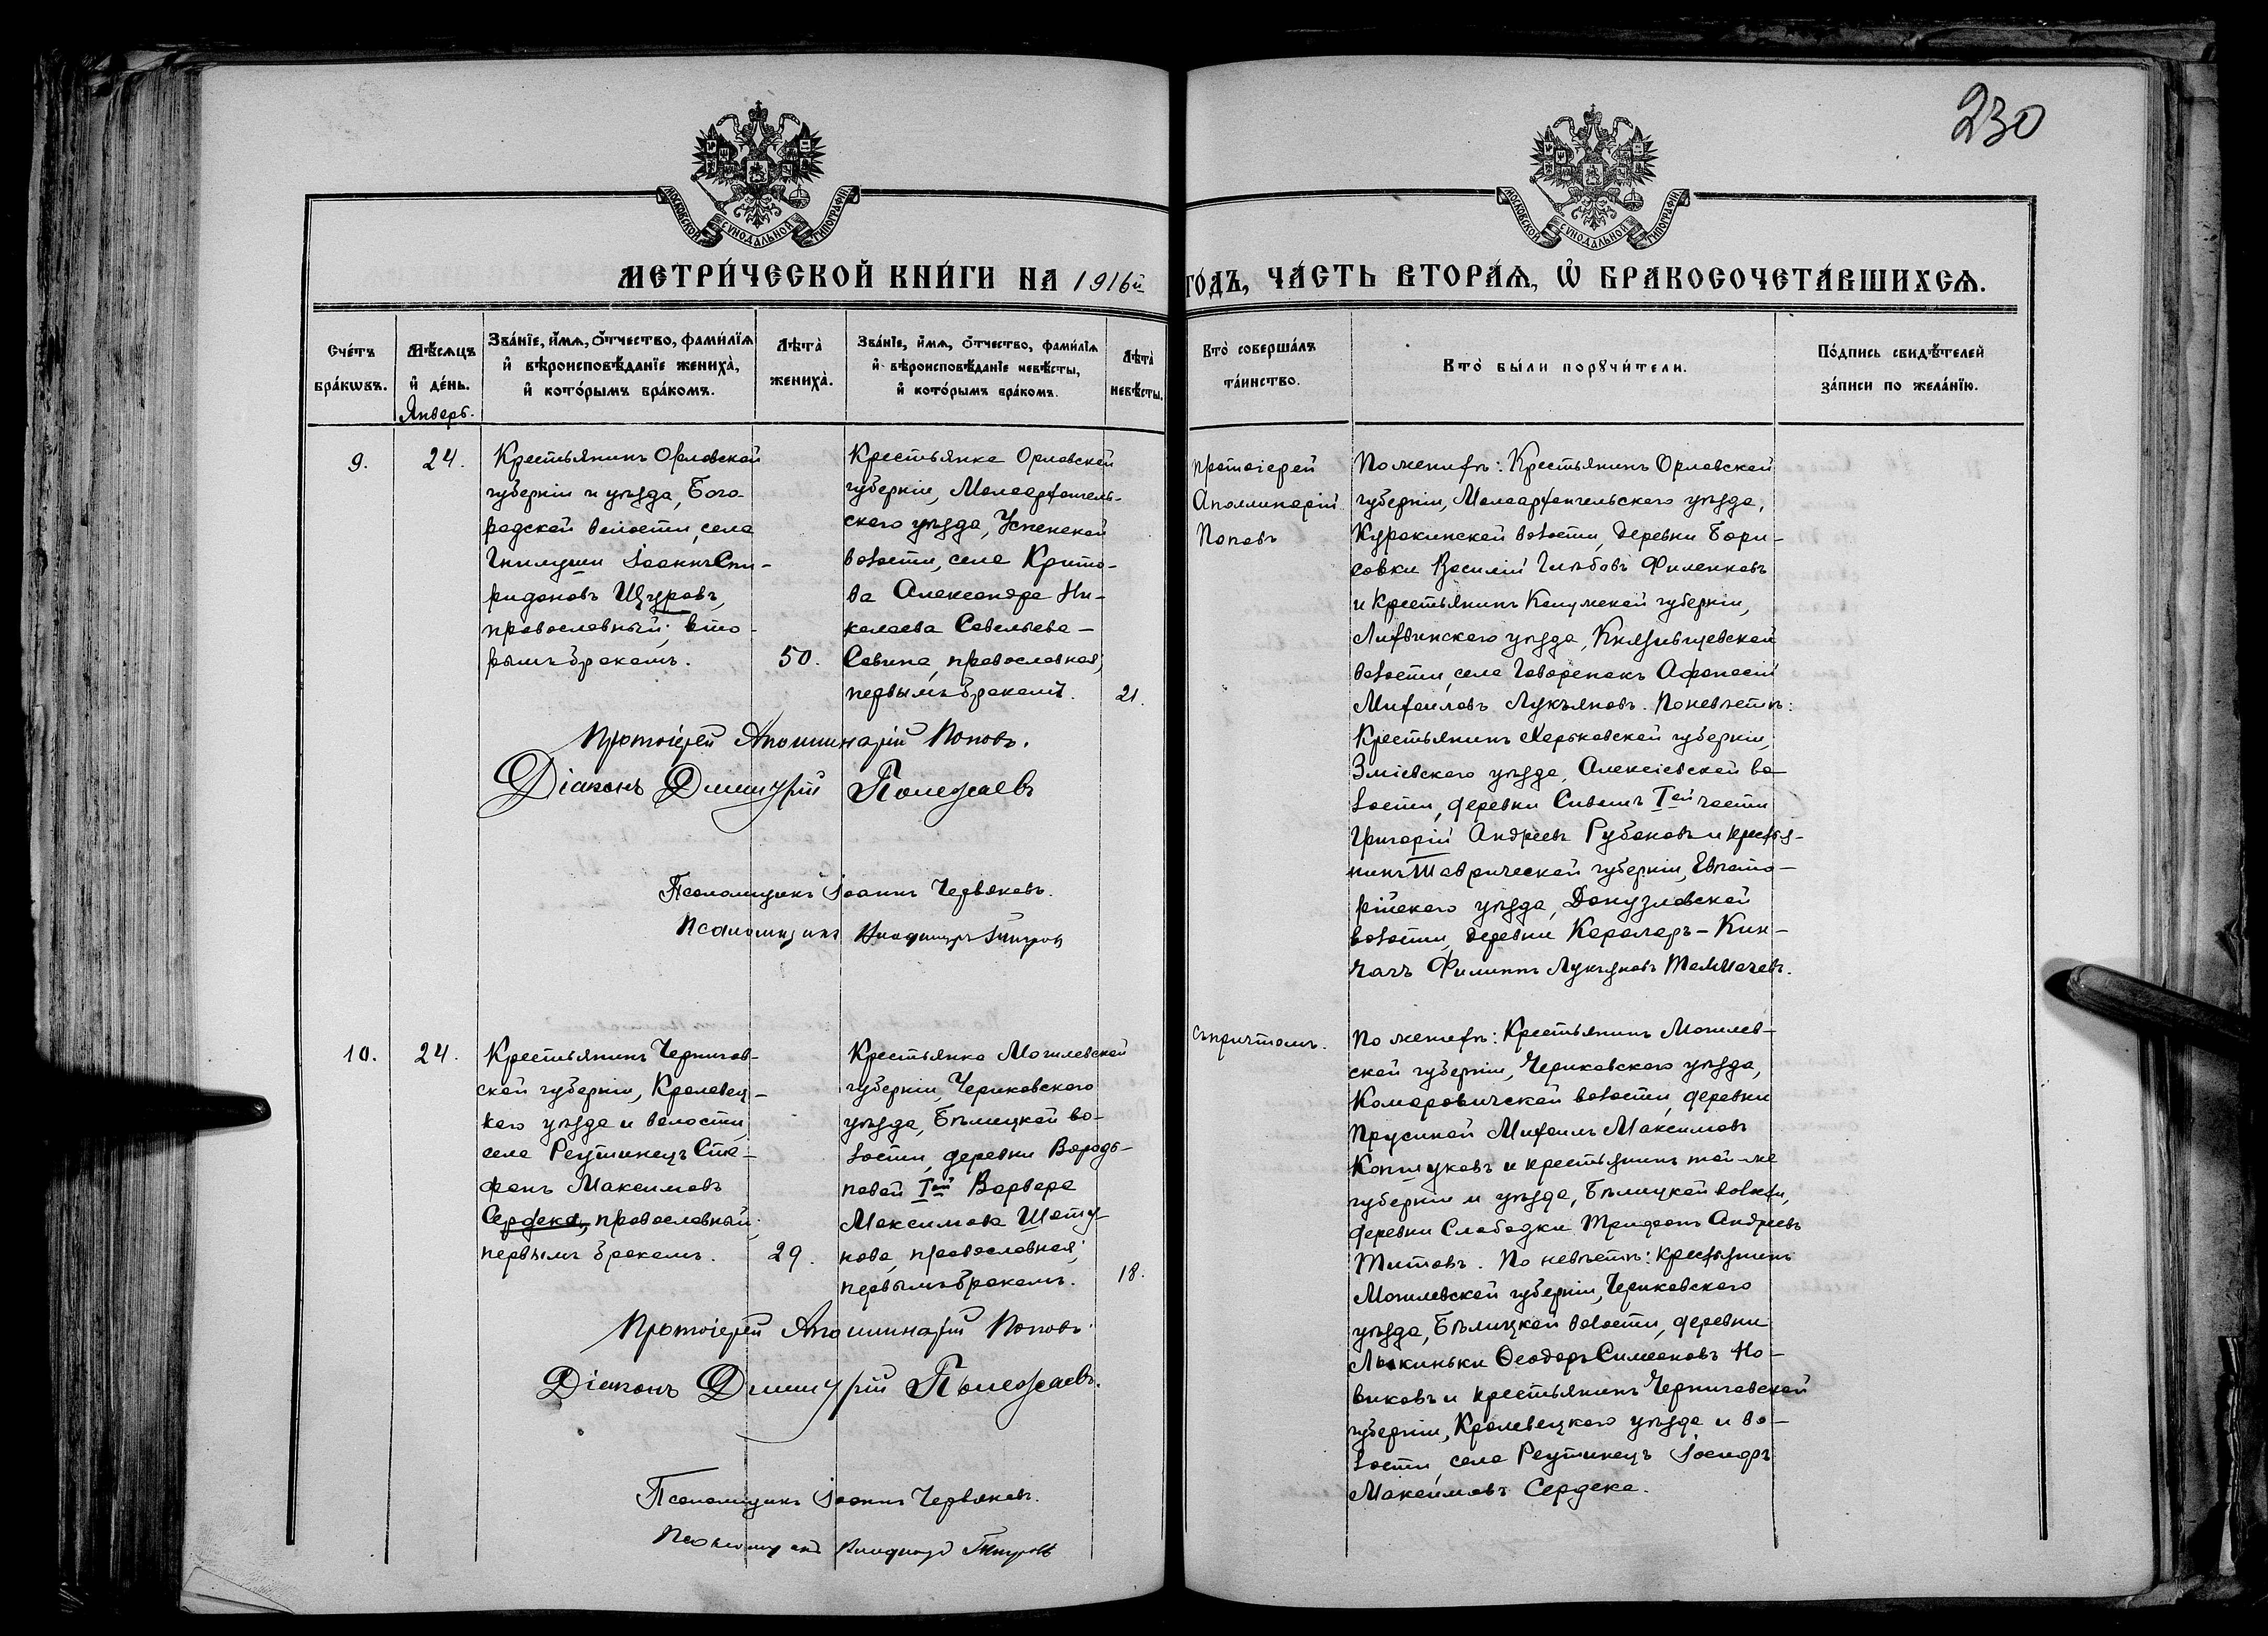 230
МОСКОВСКОЙ СѴНОДАЛЬНОЙ ТИПОГРАФІИ
МОСКОВСКОЙ СѴНОДАЛЬНОЙ ТИПОГРАФІИ
МЕТРИ́ЧЕСКОЙ КНИ́ГИ НА 1916й ГО́ДЪ, ЧА́СТЬ ВТОРА́Ѧ, Ѡ҆ БРАКОСОЧЕТА́ВШИХСѦ.
Сче́тъ
бра́кѡвъ.
Мѣ́сѧцъ
и҆ де́нь.
Январь.
Зва́нїе, и҆́мѧ, ѻ҆́тчество, фами́лїѧ
и҆ вѣроисповѣ́данїе жениха̀,
и҆ кото́рымъ бра́комъ.
Лѣта̀
жениха̀.
Зва́нїе, и҆́мѧ, ѻ҆́тчество, фами́лїѧ
и҆ вѣроисповѣ́данїе невѣ́сты,
и҆ кото́рымъ бра́комъ.
Лѣта̀
невѣ́сты.
Кто̀ соверша́лъ
та́инство.
Кто̀ бы́ли порꙋчи́тели.
По́дпись свидѣ́телей
за́писи по жела́нїю.
9.
24.
Крестьянинъ Орловской
губерніи и уѣзда, Бого-
радской волости, села
Гнилуши Іоаннъ Спи-
ридоновъ Щуровъ,
православный; вто-
рымъ бракомъ.
50.
Крестьянка Орловской
губерніи, Малоархангель-
скаго уѣзда, Успенской
волости, села Крито-
ва Александра Ни-
колаева Савельева-
Савина, православная;
первымъ бракомъ.
21.
Протоіерей
Аполлинарій
Поповъ
По женихѣ: Крестьянинъ Орловской
губерніи, Малоархангельскаго уѣзда,
Куракинской волости, деревни Бори-
совки Василій Глѣбовъ Филенковъ
и крестьянинъ Калужской губерніи,
Лихвинскаго уѣзда, Князищевской
волости, села Говоренокъ Афанасій
Михаиловъ Лукьяновъ. По невѣстѣ:
Крестьянинъ Харьковской губерніи,
Зміевскаго уѣзда, Алексіевской во-
лости, деревни Сивашъ Iой части
Григорій Андреевъ Рубановъ и кресть-
нинъ Таврической губерніи, Евпато-
рійскаго уѣзда, Донузлавской
волости, деревни Караларъ-Кин-
гачъ Филиппъ Лукьяновъ Толмачевъ.
Протоіерей Аполлинарій Поповъ.
Діаконъ Димитрій Полежаевъ
Псаломщикъ Іоаннъ Червяковъ.
Псаломщикъ Владиміръ
10.
24.
Крестьянинъ Чернигов-
ской губерніи, Кролевец-
каго уѣзда и волости,
села Реутинецъ Сте-
фанъ Максимовъ
Сердека, православный;
первымъ бракомъ.
29.
Крестьянка Могилевской
губерніи, Чериковскаго
уѣзда, Бѣлицкой во-
лости, деревни Вородь-
повой Iой Варвара
Максимова Шату-
нова, православная;
первымъ бракомъ.
18.
съ причтомъ.
По женихѣ: Крестьянинъ Могилев-
ской губерніи, Чериковскаго уѣзда,
Комаровичской волости, деревни
Прусиной Михаилъ Максимовъ
Копшуковъ и крестьянинъ той-же
губерніи и уѣзда, Бѣлицкой волости,
деревни Слободки Трифонъ Андреевъ
Титовъ. По невѣстѣ: крестьянинъ
Могилевской губерніи, Чериковскаго
уѣзда, Бѣлицкой волости, деревни
Лыкиньки Ѳеодоръ Симеоновъ Но-
виковъ и крестьянинъ Черниговской
губерніи, Кролевецкаго уѣзда и во-
лости, села Реутинецъ Іосифъ
Максимовъ Сердека.
Протоіерей Аполлинарій Поповъ
Діаконъ Димитрій Полежаевъ.
Псаломщикъ Іоаннъ Червяковъ.
Псаломщикъ Владиміръ